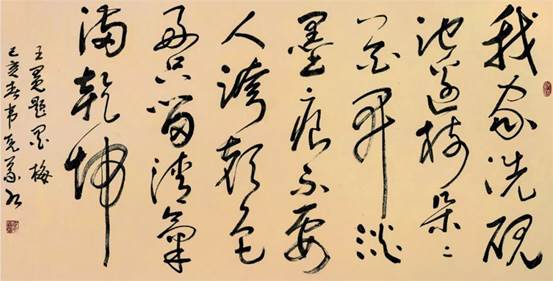 我家洗砚
池边树朵々
花开淡
墨痕不要
人誇颜色
好只留清氣
满乾坤
王冕题墨梅
己亥春韦克义书